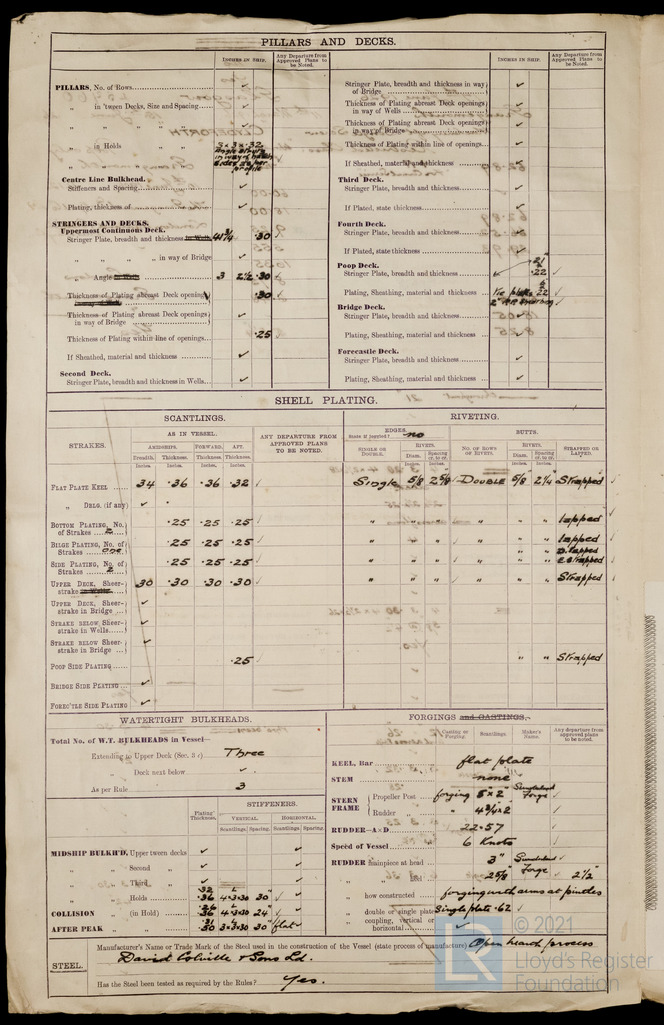 PILLARS AND DECKS.
INCHES IN SHIP.
Any Departure from Approved Plans to be Noted.
PILLARS, No. of Rows
in 'tween Decks, Size and Spacing
" " "
" in Holds 3 × 3 × .32
" " "
Centre Line Bulkhead.
Stiffeners and Spacing
Plating, thickness of
STRINGERS AND DECKS.
Uppermost Continuous Deck.
Stringer Plate, breadth and thickness 41¾ .30
" " " in way of Bridge
" Angle 3 2½ .30
Thickness of Plating abreast Deck openings .30
Thickness of Plating abreast Deck openings in way of Bridge
Thickness of Plating within line of openings .25
If Sheathed, material and thickness
Second Deck.
Stringer Plate, breadth and thickness in Wells
INCHES IN SHIP.
Any Departure from Approved Plans to be Noted.
Stringer Plate, breadth and thickness in way of Bridge
Thickness of Plating abreast Deck openings in way of Wells
Thickness of Plating abreast Deck openings in way of Bridge
Thickness of Plating within line of openings
If Sheathed, material and thickness
Third Deck.
Stringer Plate, breadth and thickness
If Plated, state thickness
Fourth Deck.
Stringer Plate, breadth and thickness
If Plated, state thickness
Poop Deck.
Stringer Plate, breadth and thickness 21 .22
Plating, Sheathing, material and thickness .22
Bridge Deck.
Stringer Plate, breadth and thickness
Plating, Sheathing, material and thickness
Forecastle Deck.
Stringer Plate, breadth and thickness
Plating, Sheathing, material and thickness
SHELL PLATING.
SCANTLINGS.
RIVETING.
STRAKES.
AS IN VESSEL.
AMIDSHIPS. FORWARD. AFT.
Breadth. Thickness. Thickness. Thickness.
Inches. Inches. Inches. Inches.
ANY DEPARTURE FROM APPROVED PLANS TO BE NOTED.
EDGES.
State if joggled? no
SINGLE OR DOUBLE.
RIVETS.
Diam. Spacing cr. to cr.
BUTTS.
NO. OF ROWS OF RIVETS.
RIVETS.
Diam. Spacing cr. to cr.
STRAPPED OR LAPPED.
FLAT PLATE KEEL 34 .36 .36 .32 Single 5/8 2⅝ DOUBLE 5/8 2¼ Strapped
" DBLG. (if any)
BOTTOM PLATING, No. of Strakes 2 .25 .25 .25 " " " " " " lapped
BILGE PLATING, No. of Strakes one .25 .25 .25 " " " " " " lapped
SIDE PLATING, No. of Strakes 2 .25 .25 .25 " " " " " "
UPPER DECK, Sheerstrake 30 .30 .30 .30 " " " " " " Strapped
UPPER DECK, Sheerstrake in Bridge
STRAKE BELOW Sheerstrake in Wells
STRAKE BELOW Sheerstrake in Bridge
POOP SIDE PLATING .25 " " Strapped
BRIDGE SIDE PLATING
FOREC'TLE SIDE PLATING
WATERTIGHT BULKHEADS.
Total No. of W.T. BULKHEADS in Vessel—
Extending to Upper Deck (Sec. 3 c) Three
" Deck next below
As per Rule 3
Plating Thickness.
STIFFENERS.
VERTICAL. HORIZONTAL.
Scantlings. Spacing. Scantlings. Spacing.
MIDSHIP BULKH'D, Upper tween decks
" " Second "
" " Third "
" " Holds .32 .36 4×3×30 30
COLLISION " (in Hold) .26 .36 4×3×30 24
AFTER PEAK " " .31 .50 3×3×30 30 flat
FORGINGS and CASTINGS.
Casting or Forging. Scantlings. Maker's Name. Any departure from approved plans to be noted.
KEEL, Bar flat plate
STEM none
STERN FRAME Propeller Post forging 5×2 Sunderland Forge
Rudder " " 4¾×2
RUDDER—A×D 22.57
Speed of Vessel 6 Knots
RUDDER mainpiece at head 3" Sunderland Forge
" " 2⅝ 2½
" how constructed forging with arms at pintles
" double or single plate Single plate .62
" coupling, vertical or horizontal
STEEL.
Manufacturer's Name or Trade Mark of the Steel used in the construction of the Vessel (state process of manufacture) Open hearth process
David Colville & Sons Ld.
Has the Steel been tested as required by the Rules? Yes.
© 2021
LR
Lloyd's Register
Foundation